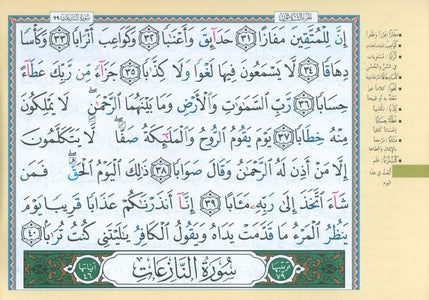 سورة النازعات ٧٩
إِنَّ لِلْمُتَّقِينَ مَفَازًا ٣١ حَدَآئِقَ وَأَعْنَٰبًا ٣٢ وَكَوَاعِبَ أَتْرَابًا ٣٣ وَكَأْسًا
دِهَاقًا ٣٤ لَّا يَسْمَعُونَ فِيهَا لَغْوًا وَلَا كِذَّٰبًا ٣٥ جَزَآءً مِّن رَّبِّكَ عَطَآءً
حِسَابًا ٣٦ رَّبِّ السَّمَٰوَٰتِ وَالْأَرْضِ وَمَا بَيْنَهُمَا الرَّحْمَٰنِ لَا يَمْلِكُونَ
مِنْهُ خِطَابًا ٣٧ يَوْمَ يَقُومُ الرُّوحُ وَالْمَلَٰٓئِكَةُ صَفًّا لَّا يَتَكَلَّمُونَ
إِلَّا مَنْ أَذِنَ لَهُ الرَّحْمَٰنُ وَقَالَ صَوَابًا ٣٨ ذَٰلِكَ الْيَوْمُ الْحَقُّ فَمَن
شَآءَ اتَّخَذَ إِلَىٰ رَبِّهِ مَـَٔابًا ٣٩ إِنَّآ أَنذَرْنَٰكُمْ عَذَابًا قَرِيبًا يَوْمَ
يَنظُرُ الْمَرْءُ مَا قَدَّمَتْ يَدَاهُ وَيَقُولُ الْكَافِرُ يَٰلَيْتَنِي كُنتُ تُرَٰبًا ٤٠
ترتيبها ٧٩ سُورَةُ النَّازِعَاتِ آياتها ٤٦